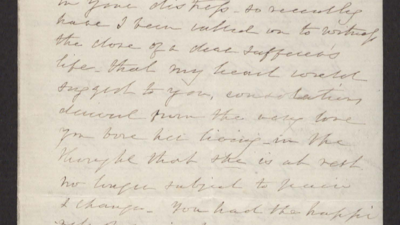 in your distress - so recently
have I been called on to witness
the close of a dear sufferer's
life - that my heart would
suggest to you, consolations
derived from the very love
you bore her living - in the
thought that she is at rest
no longer subject to
& change - You had the happi